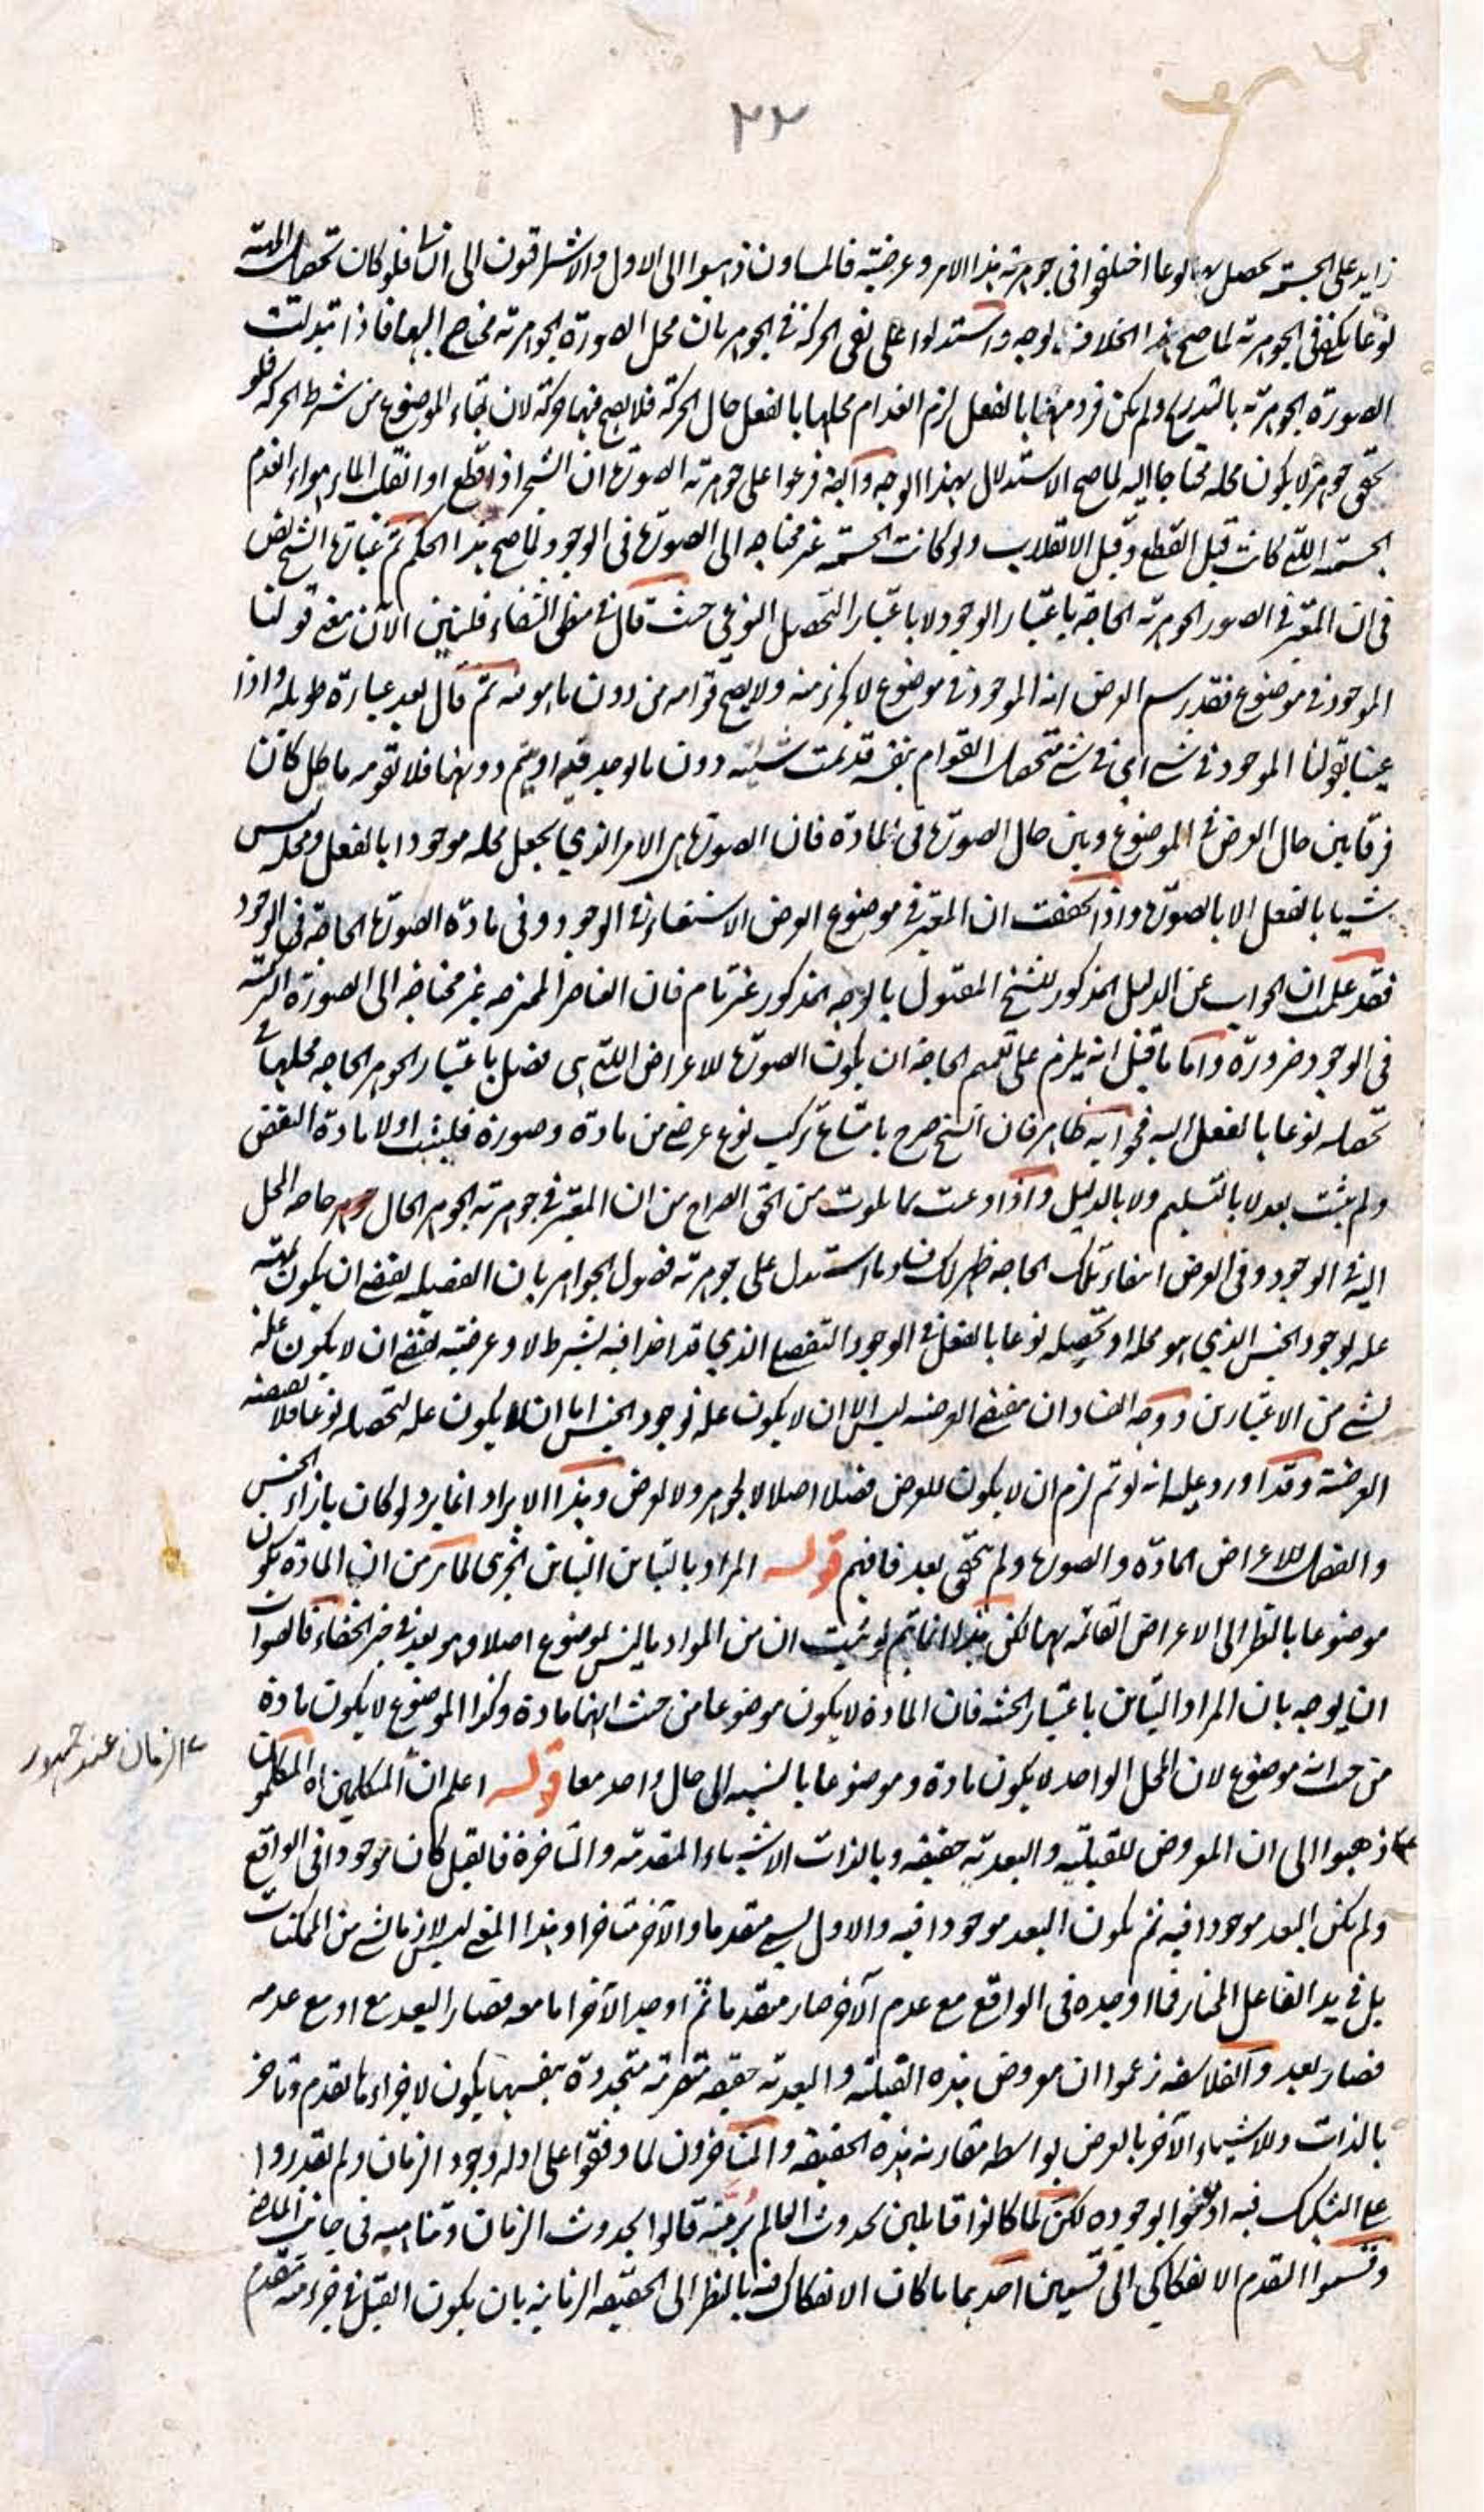 ٢٢
زايد على الجسمية يحصل بها نوعا اختلفوا فى جوهرية هذا الامر وعرضيته فالمشاؤن ذهبوا الى الاول والاشراقيون الى الثانى فلو كان تحصل الهيئة
نوعا يكفى فى الجوهرية لما صح هذا الخلاف بوجه واستدلوا على نفى الحركة فى الجوهر بان محل الصورة الجوهرية محتاج اليها فاذا تبدلت
الصورة الجوهرية بالتدريج ولم يكن فرد منها بالفعل لزم انعدام محلها بالفعل حال الحركة فلا يصح فيها حركة لان بقاء الموضوع من شرط الحركة فلو
تحقق جوهر لا يكون محله محتاجا اليه لما صح الاستدلال بهذا الوجه وايضا فرعوا على جوهرية الصورة ان الشجر اذا قطع او انقلب الماء هواء انعدم
الجسمية اللتى كانت قبل القطع وقبل الانقلاب ولو كانت الجسمية غير محتاجه الى الصورة فى الوجود لما صح هذا الحكم ثم عبارة الشيخ نص
فى ان المعتبر فى الصور الجوهرية الحاجة باعتبار الوجود لا باعتبار التحصل النوعى حيث قال فى منطق الشفاء فلنبين الآن معنى قولنا
الموجود فى موضوع فقد رسم العرض انه الموجود فى موضوع لا كجزء منه ولا يصح قوامه من دون ما هو فيه ثم قال بعد عبارة طويلة واذا
عنينا بقولنا الموجود فى شئ اى فى شئ متحصل القوام بنفسه قد تمت شيئيته دون ما يوجد فيه او يتم دونها فلا تقومه ما حل كان
فرقا بين حال العرض فى الموضوع وبين حال الصورة فى المادة فان الصورة هى الامر الذي يجعل محله موجودا بالفعل ومحله ليس
شيئا بالفعل الا بالصورة واذا تحققت ان المعتبر فى موضوع العرض الاستغناء فى الوجود وفى مادة الصورة الحاجة فى الوجود
فقد علمت ان الجواب عن الدليل المذكور للشيخ المقتول بالوجه المذكور غير تام فان العناصر الممتزجه غير محتاجه الى الصورة التركيبية
فى الوجود ضرورة واما ما قيل انه يلزم على تعميم الحاجة ان يكون الصورة للاعراض اللتى هى فصل باعتبار الجوهر الحاجه محلها فى
تحصله نوعا بالفعل اليه فجوابه ظاهر فان الشيخ صرح بامتناع تركب نوع عرضى من مادة وصورة فليثبت اولا مادة النقض
ولم يثبت بعد لا بالتسليم ولا بالدليل واذا وعيت بما تلوت من الحق الصراح من ان المعتبر فى جوهرية الجوهر الحال حاجة المحل
اليه فى الوجود وفى العرض انتفاء تلك الحاجه ظهر لك فساد ما استدل على جوهرية فصول الجواهر بان الفصيلة يقتضى ان يكون
علة لوجود الجنس الذي هو محله او تحصيله نوعا بالفعل فى الوجود التفصلى الذي قد اخذ فيه بشرط لا وعرضيته تقتضى ان لا يكون علة
لشئ من الاعتبارين ووجه الفساد ان مقتضى العرضيه ليس الا ان لا يكون علة لوجود الجنس اما ان لا يكون علة لتحصله نوعا فلا تقتضيه
العرضية وقد اورد عليه انه لو تم لزم ان لا يكون للعرض فصل اصلا لا لجوهر ولا لعرض وهذا الايراد انما يرد لو كان بازاء الجنس
والفصل للاعراض المادة والصورة ولم يتحقق بعد فافهم قوله المراد بالتباين التباين الجزئى لما مر من ان المادة يكون
موضوعا بالنظر الى الاعراض القائمه بها لكن هذا انما يتم لو ثبت ان من المواد ما ليس لموضوع اصلا وهو بعد فى حيز الخفاء فالصواب
ان يوجه بان المراد التباين باعتبار الحيثية فان المادة لا يكون موضوعا من حيث انها مادة وكذا الموضوع لا يكون مادة
من حيث انه موضوع لان المحل الواحد لا يكون مادة وموضوعا بالنسبه الى حال واحد معا قوله اعلم ان المتكلمين اه المتكلمون
ذهبوا الى ان المعروض للقبلية والبعدية حقيقه وبالذات الاشياء المتقدمة والمتاخرة فالقبل كان موجودا فى الواقع
ولم يكن البعد موجودا فيه ثم يكون البعد موجودا فيه والاول يسمى متقدما والآخر متاخرا وهذا المعنى ليس لازما لشئ من الممكنات
بل فى يد الفاعل المختار فما اوجده فى الواقع مع عدم الآخر صار متقدما ثم اوجد الآخر اما معه فصار البعد مع او مع عدمه
فصار بعد والفلاسفه زعموا ان معروض هذه القبلية والبعدية حقيقة متصرمة متجددة بنفسها يكون لاجزاءها تقدم وتاخر
بالذات وللاشياء الآخر بالعرض بواسطه مقارنه هذه الحقيقه والمتاخرون لما وقفوا على ادلة وجود الزمان ولم يقدروا
على التشكيك فيه اذعنوا بوجوده لكن لما كانوا قابلين بحدوث العالم برمته قالوا بحدوث الزمان وتناهيه فى جانب الماضى
وقسموا التقدم الانفكاكى الى قسمين احدهما ما كان الانفكاك فيه بالنظر الى الحقيقه الزمانية بان يكون القبل فى جزء منه متقدم
الزمان عند جمهور